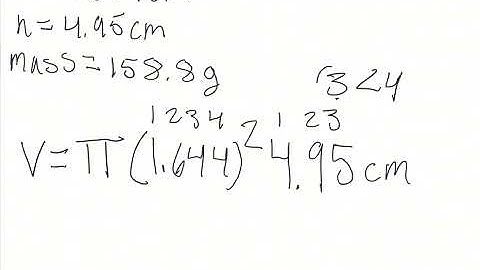 h=4.95cm
mass=158.8g
3<4
1 2 3 4 1 2 3
V=π(1.644)²4.95cm